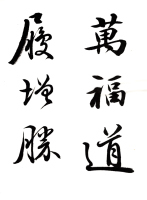 萬福道
履增勝